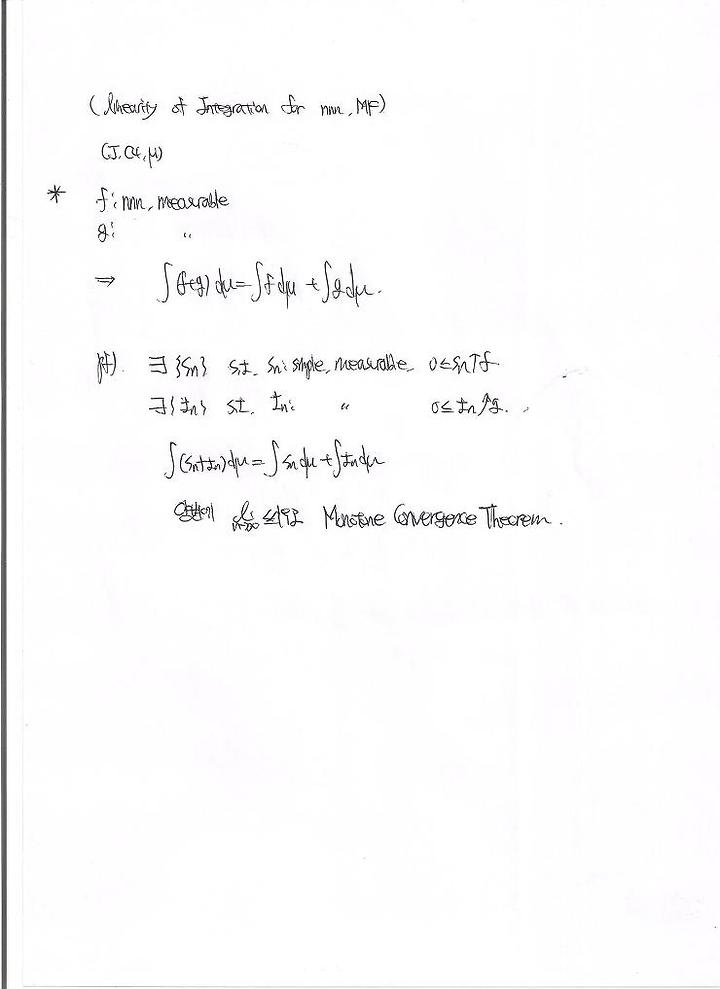 (linearity of Integration for nnn, MF)
* f: nnn, measurable
g: "
⇒ ∫(f+g) dμ = ∫f dμ + ∫g dμ.
pf). ∃{sn} s.t. sn: simple, measurable, 0≤sn↑f
∃{tn} s.t. tn: " 0≤tn↑g.
∫(sn+tn)dμ = ∫sn dμ + ∫tn dμ
양변에 n→∞ Monotone Convergence Theorem.